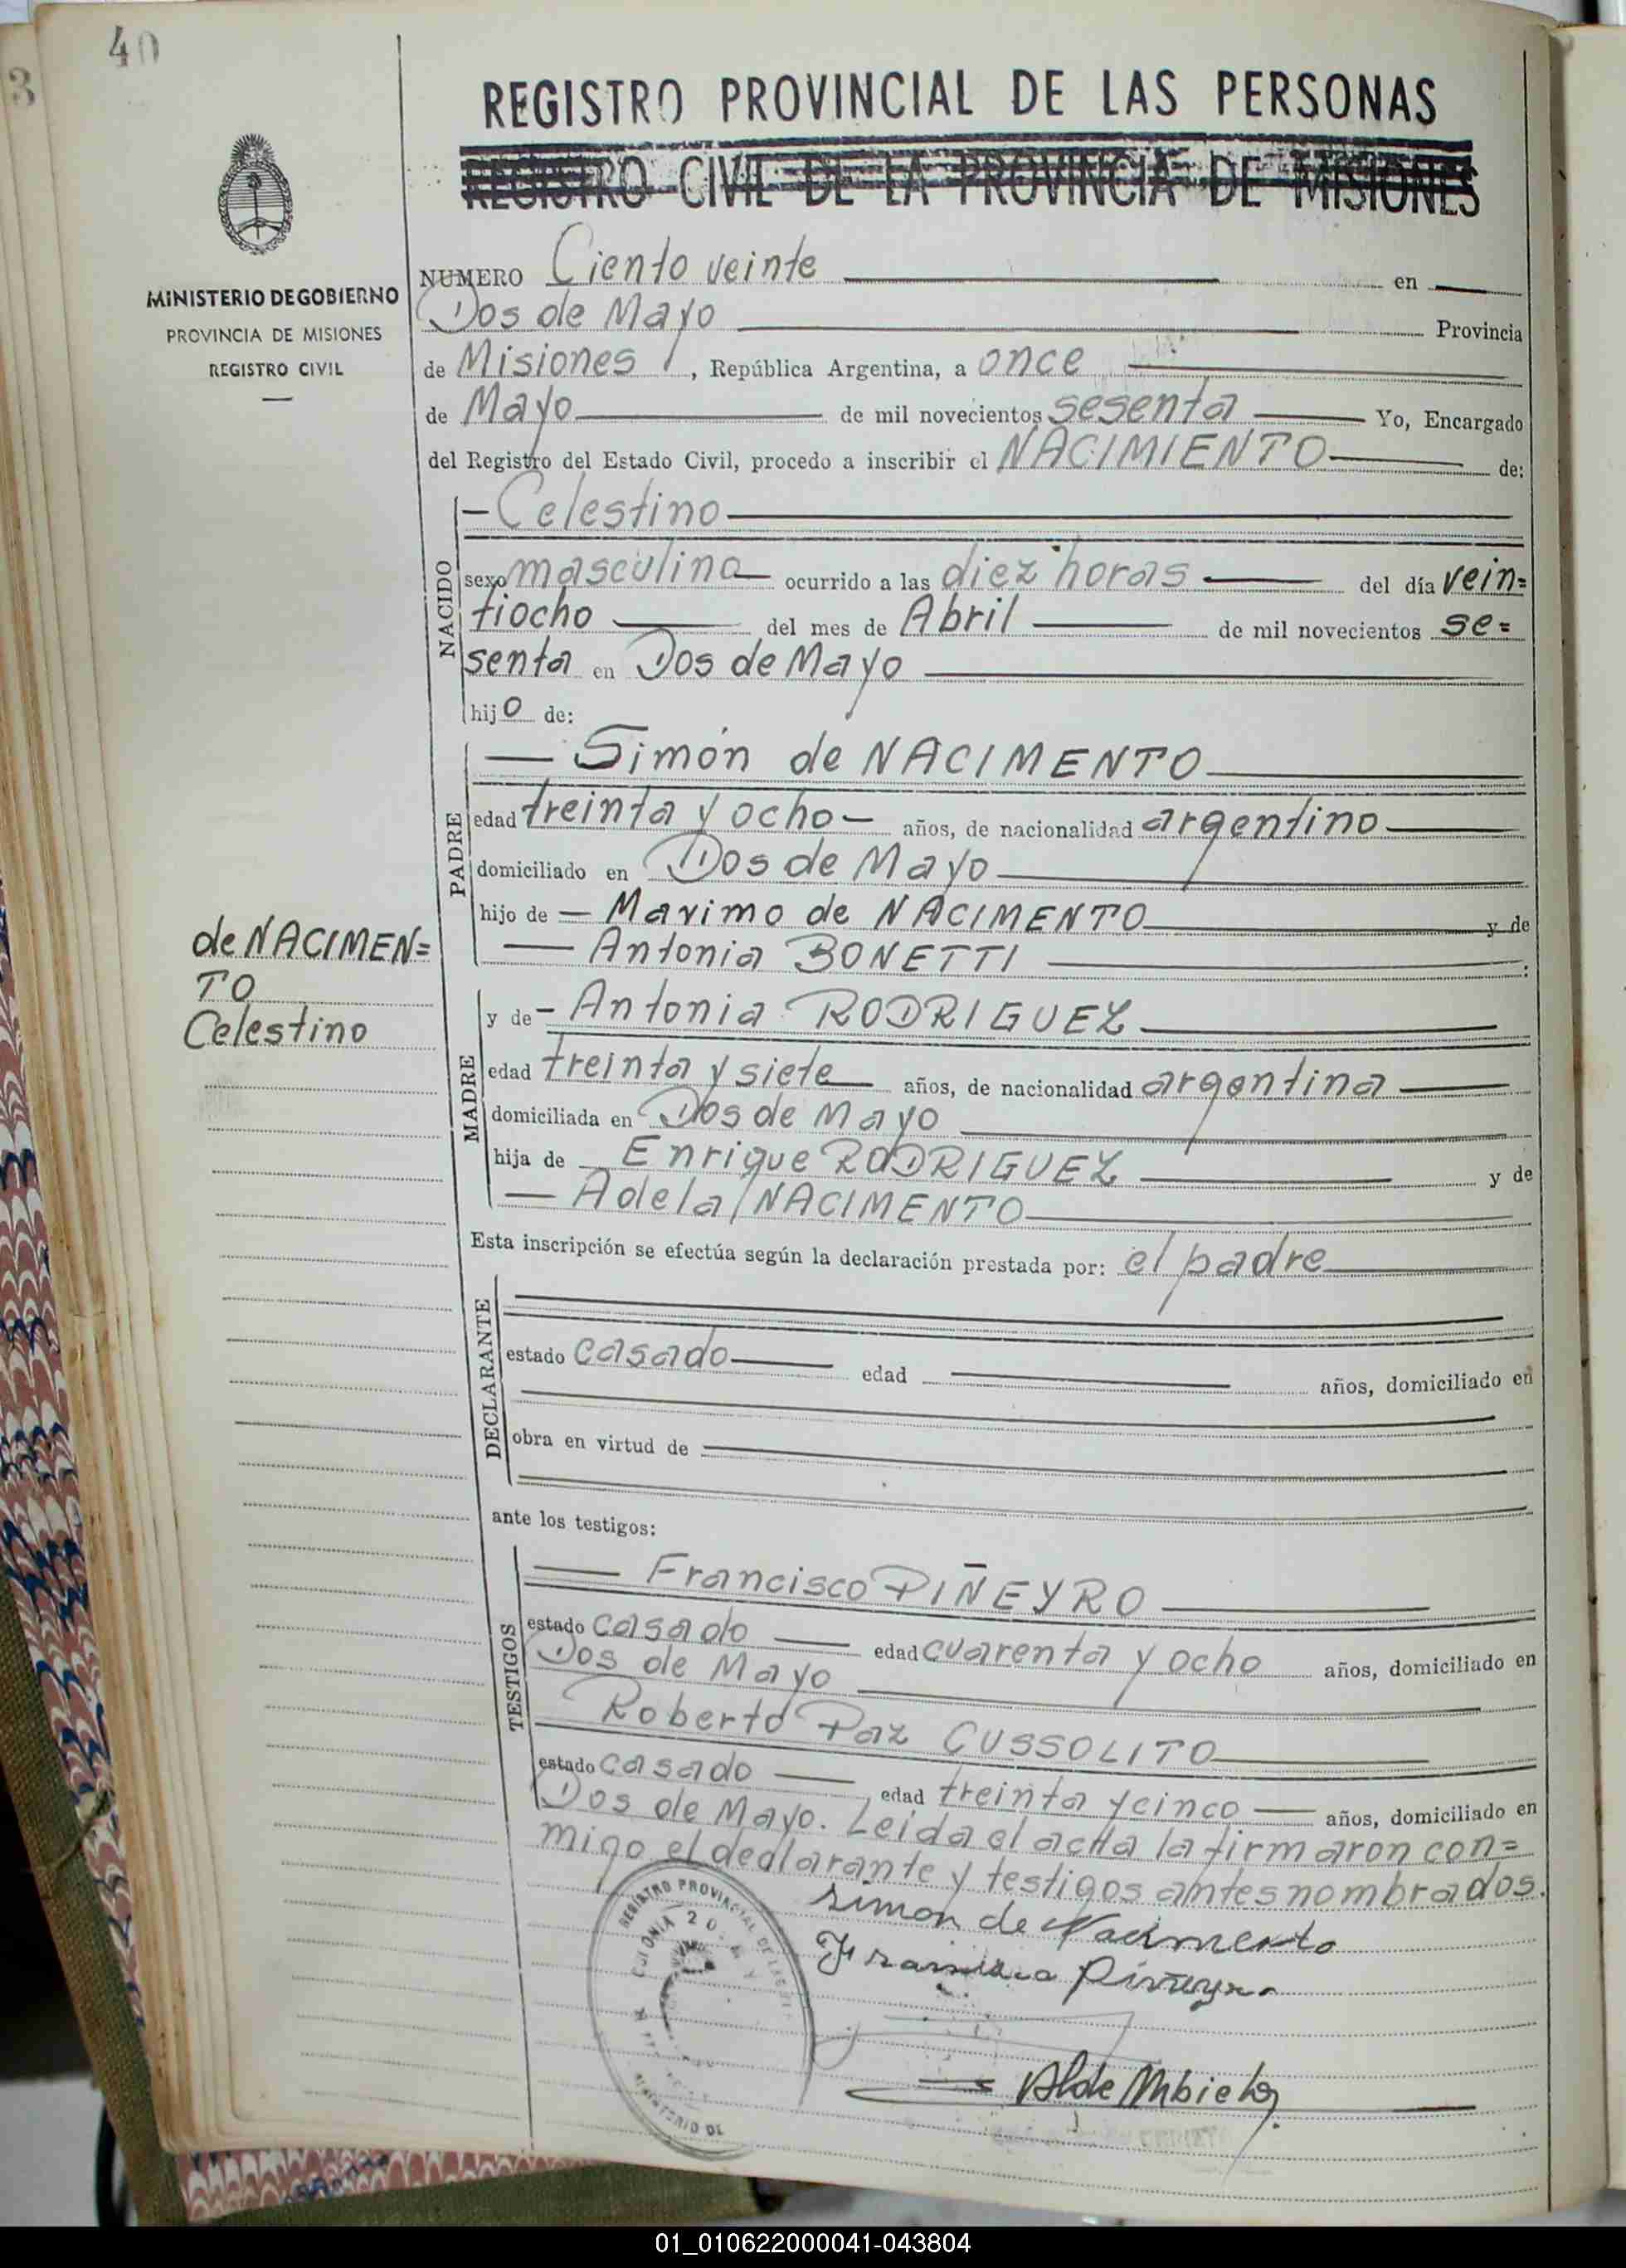 40
3
REGISTRO PROVINCIAL DE LAS PERSONAS
REGISTRO CIVIL DE LA PROVINCIA DE MISIONES
MINISTERIO DE GOBIERNO
PROVINCIA DE MISIONES
REGISTRO CIVIL
NUMERO Ciento veinte en
Dos de Mayo Provincia
de Misiones, República Argentina, a once
de Mayo de mil novecientos sesenta Yo, Encargado
del Registro del Estado Civil, procedo a inscribir el NACIMIENTO de:
NACIDO
- Celestino
sexo masculino ocurrido a las diez horas del día vein=
tiocho del mes de Abril de mil novecientos se=
senta en Dos de Mayo
hijo de:
PADRE
Simón de NACIMENTO
edad treinta y ocho años, de nacionalidad argentino
domiciliado en Dos de Mayo
hijo de - Maximo de NACIMENTO y de
Antonia BONETTI :
de NACIMEN=
TO
Celestino
MADRE
y de - Antonia RODRIGUEZ
edad treinta y siete años, de nacionalidad argentina
domiciliada en Dos de Mayo
hija de Enrique RODRIGUEZ y de
Adela NACIMENTO
Esta inscripción se efectúa según la declaración prestada por: el padre
DECLARANTE
estado casado edad años, domiciliado en
obra en virtud de
ante los testigos:
TESTIGOS
Francisco PIÑEYRO
estado casado edad cuarenta y ocho años, domiciliado en
Dos de Mayo
Roberto Paz CUSSOLITO
estado casado edad treinta y cinco años, domiciliado en
Dos de Mayo. Leida el acta la firmaron con=
migo el declarante y testigos antes nombrados.
Simon de Nacimento
Francisco Piñeyro
REGISTRO PROVINCIAL DE LAS
COLONIA 2
MINISTERIO DE
01_010622000041-043804